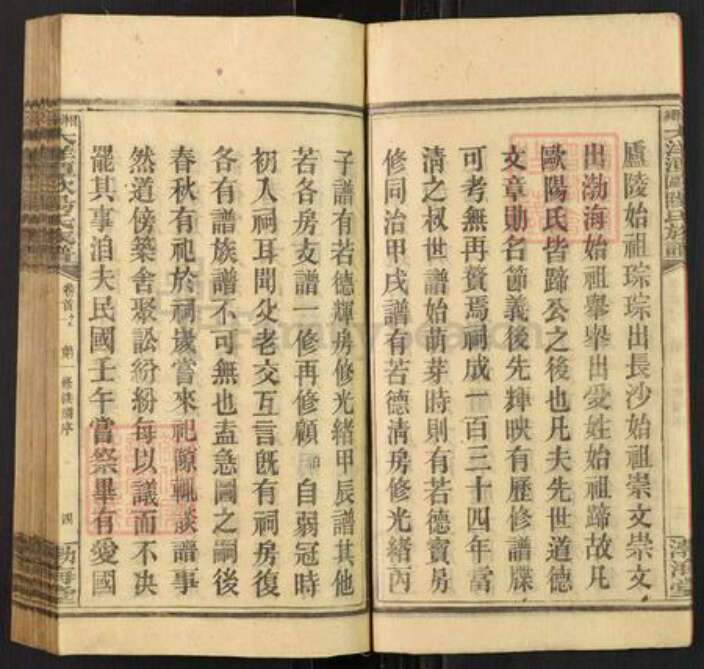 廬陵始祖琮琮出長沙始祖崇文崇文
出渤海始祖舉舉出受姓始祖蹄故凡
歐陽氏皆蹄公之後也凡夫先世道德
文章勛名節義後先輝映有歷修譜牒
可考無再贅焉祠成一百三十四年當
清之叔世譜始萌芽時則有若德賓房
修同治甲戌譜有若德清房修光緒丙
子譜有若德輝房修光緒甲辰譜其他
若各房支譜一修再修顧 自弱冠時
初入祠耳聞父老交互言旣有祠房復
各有譜族譜不可無也盍急圖之嗣後
春秋有祀於祠嵗嘗來祀頒輒談譜事
然道傍築舍聚訟紛紛每以議而不決
罷其事洎夫民國壬午嘗祭畢有愛國
卷首之 第一修族譜序 四
渤海堂